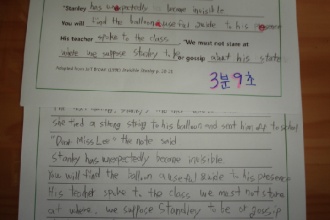 "Stanley has unexpectedly become invisible
You will find the balloon a useful guide to his presence
His teacher spoke to the class. "We must not stare at
where we suppose Stanley to be or gossip about his state."
Adapted from Jeff Brown Invisible Stanley p.
3분 9초
She tied a strong string to his balloon and sent him off to school
"Dear Miss Lee" the note said
Stanley has unexpectedly become invisible.
You will find the balloon a useful guide to his presence
His teacher spoke to the class we must not stare
at where. we suppose Standley to be or gossip